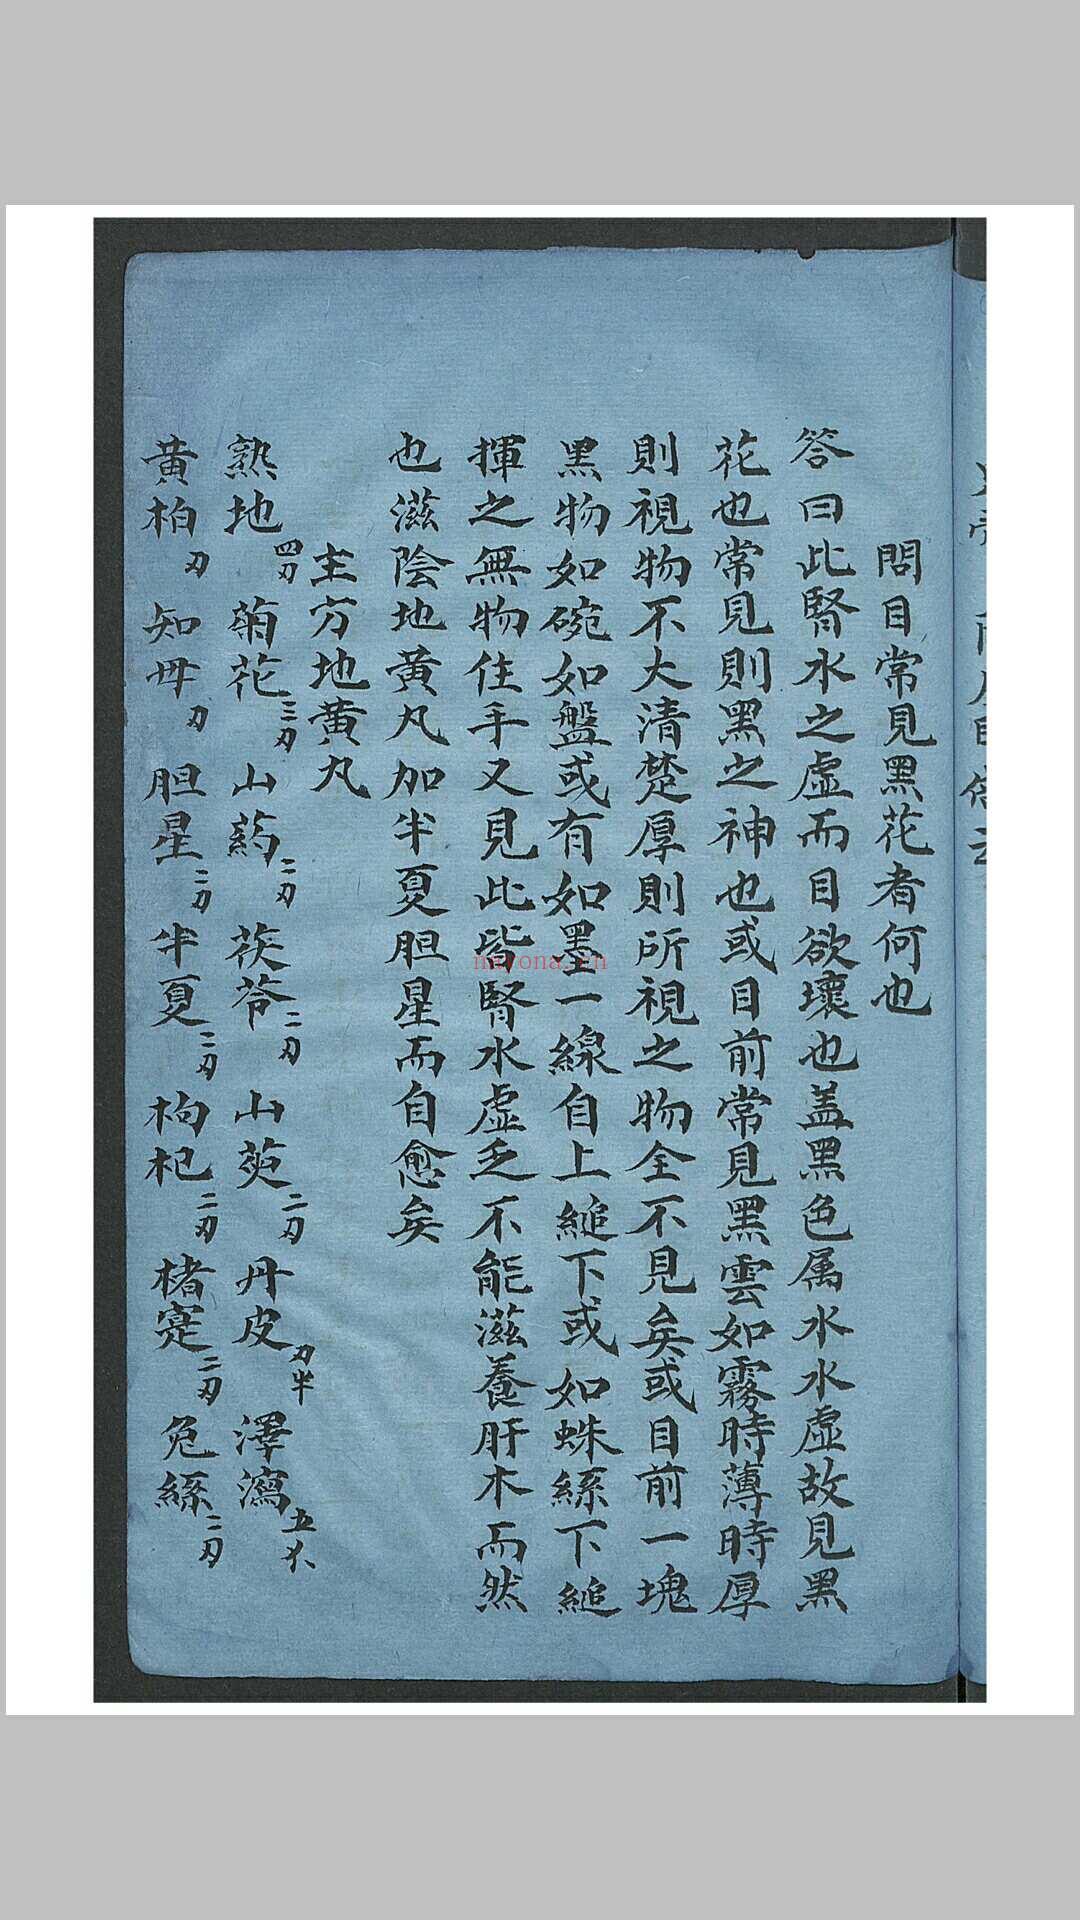 問目常見黑花者何也
答曰此腎水之虛而目欲壞也盖黑色属水水虛故見黑
花也常見則黑之神也或目前常見黑雲如霧時薄時厚
則視物不大清楚厚則所視之物全不見矣或目前一塊
黑物如碗如盤或有如墨一線自上縋下或如蛛絲下縋
揮之無物住手又見此皆腎水虛乏不能滋養肝木而然
也滋陰地黄凡加半夏胆星而自愈矣
主方地黄丸
熟地四刃 菊花三刃 山葯二刃 茯苓二刃 山萸二刃 丹皮刃半 澤瀉五
黄柏刃 知母刃 胆星二刃 半夏二刃 枸杞二刃 楮寔二刃 兔絲二刃
nayona.cn